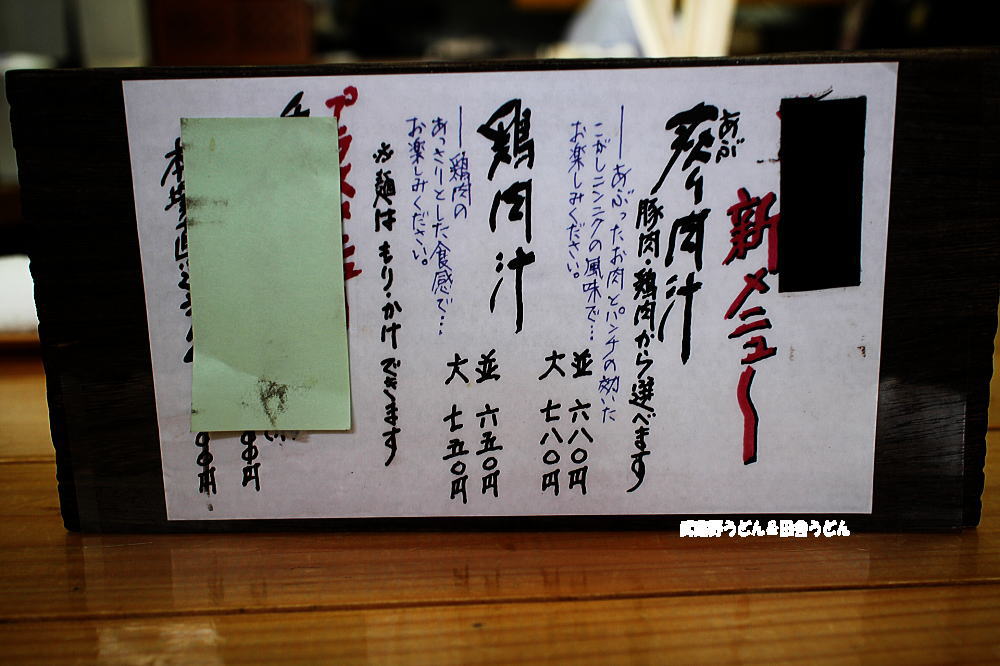 新メニュー
あぶ
炙り肉汁
豚肉・鶏肉から選べます
―あぶったお肉とパンチの効いた
こがしニンニクの風味で…
お楽しみください。
並 六八〇円
大 七八〇円
鶏肉汁
―鶏肉の
あっさりとした食感で…
お楽しみください。
並 六五〇円
大 七五〇円
※麺はもり・かけできます
武蔵野うどん&田舎うどん